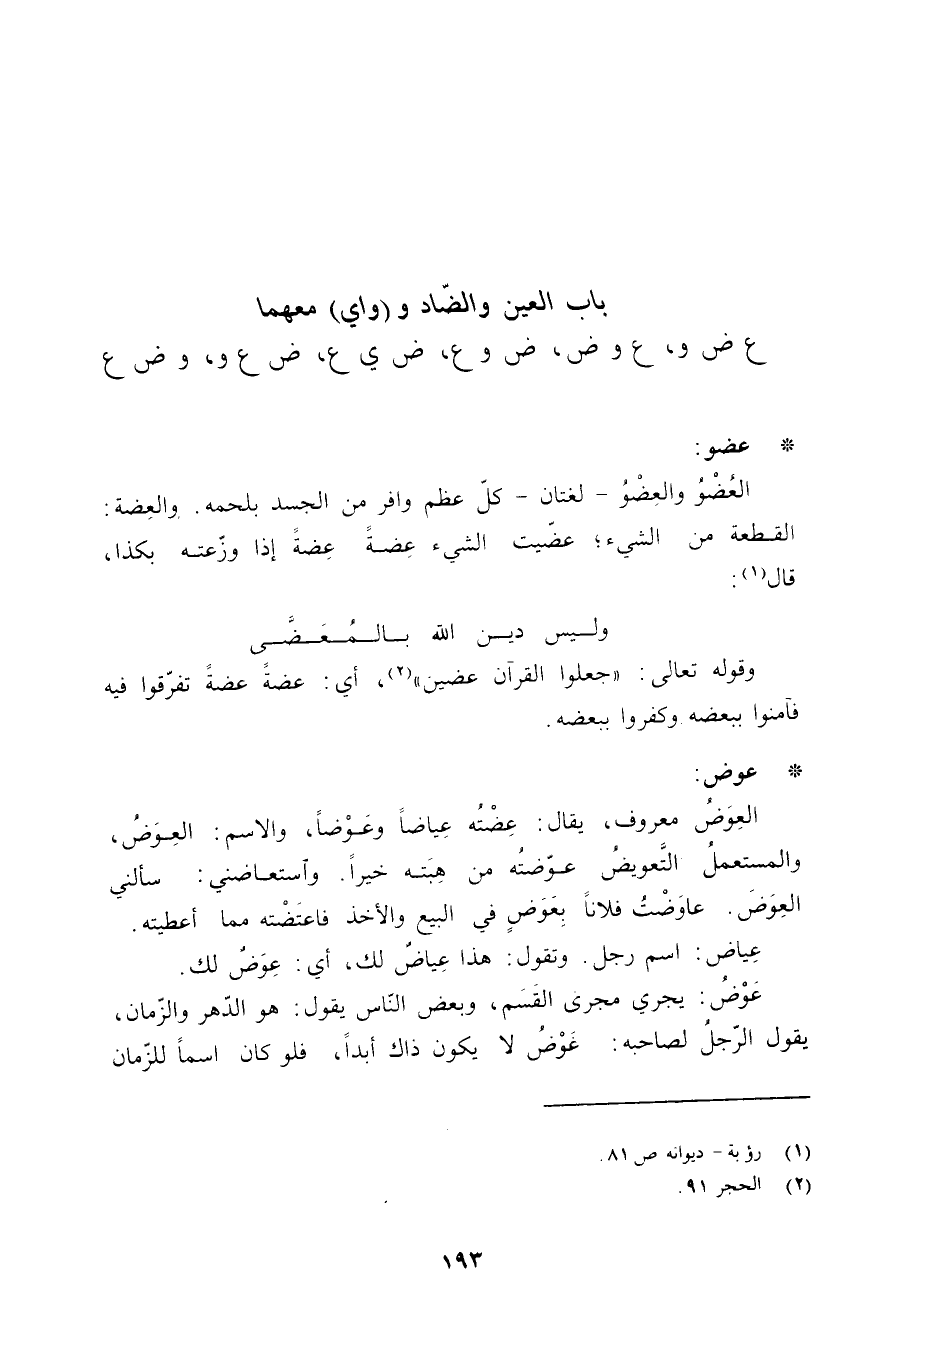 باب العين والضّاد و (واي) معهما
ع ض و، ع و ض، ض و ع، ض ي ع، ض ع و، و ض ع
* عضو:
العُضْوُ والعِضْوُ - لغتان - كلّ عظم وافر من الجسد بلحمه. والعِضة:
القـطعة من الشيء؛ عضّيت الشيء عِضـةً عِضةً إذا وزّعتـه بكذا،
قال(١):
ولـيس ديـن الله بـالـمُـعَـضَّـى
وقوله تعالى: «جعلوا القرآن عضين»(٢)، أي: عضةً عضةً تفرّقوا فيه
فآمنوا ببعضه وكفروا ببعضه.
* عوض:
العِوَضُ معروف، يقال: عِضْتُه عِياضاً وعَـوْضاً، والاسم: العِـوَضُ،
والمستعملُ التَّعويضُ عـوّضتُه من هِبَتـه خيراً. وآستعـاضني: سألني
العِوَضَ. عاوَضْتُ فلاناً بِعَوَضٍ في البيع والأخذ فاعتَضْته مما أعطيته.
عِياض: اسم رجل. وتقول: هذا عِياضٌ لك، أي: عِوَضٌ لك.
عَوْضُ: يجري مجرى القَسَم، وبعض النّاس يقول: هو الدّهر والزّمان،
يقول الرّجلُ لصاحبه: عَوْضُ لا يكون ذاك أبداً، فلو كان اسماً للزّمان
(١) رؤبة - ديوانه ص ٨١.
(٢) الحجر ٩١.
١٩٣